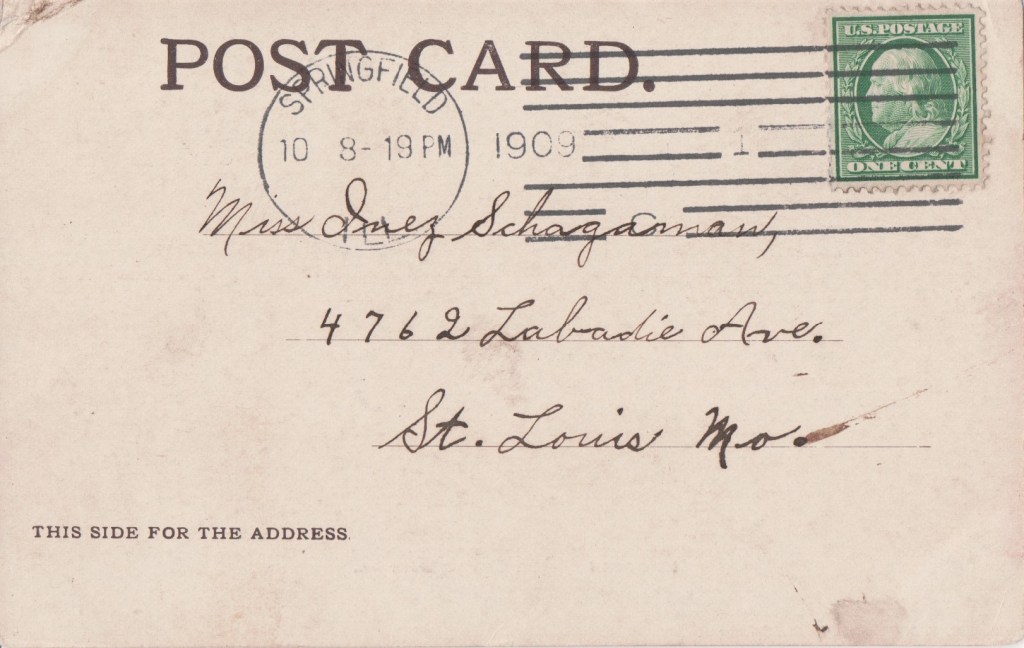 POST CARD.
U.S. POSTAGE
SPRINGFIELD
10 8-19 PM 1909 1
ILL
ONE CENT
Miss Inez Schagaman,
4762 Labadie Ave.
St. Louis Mo.
THIS SIDE FOR THE ADDRESS.